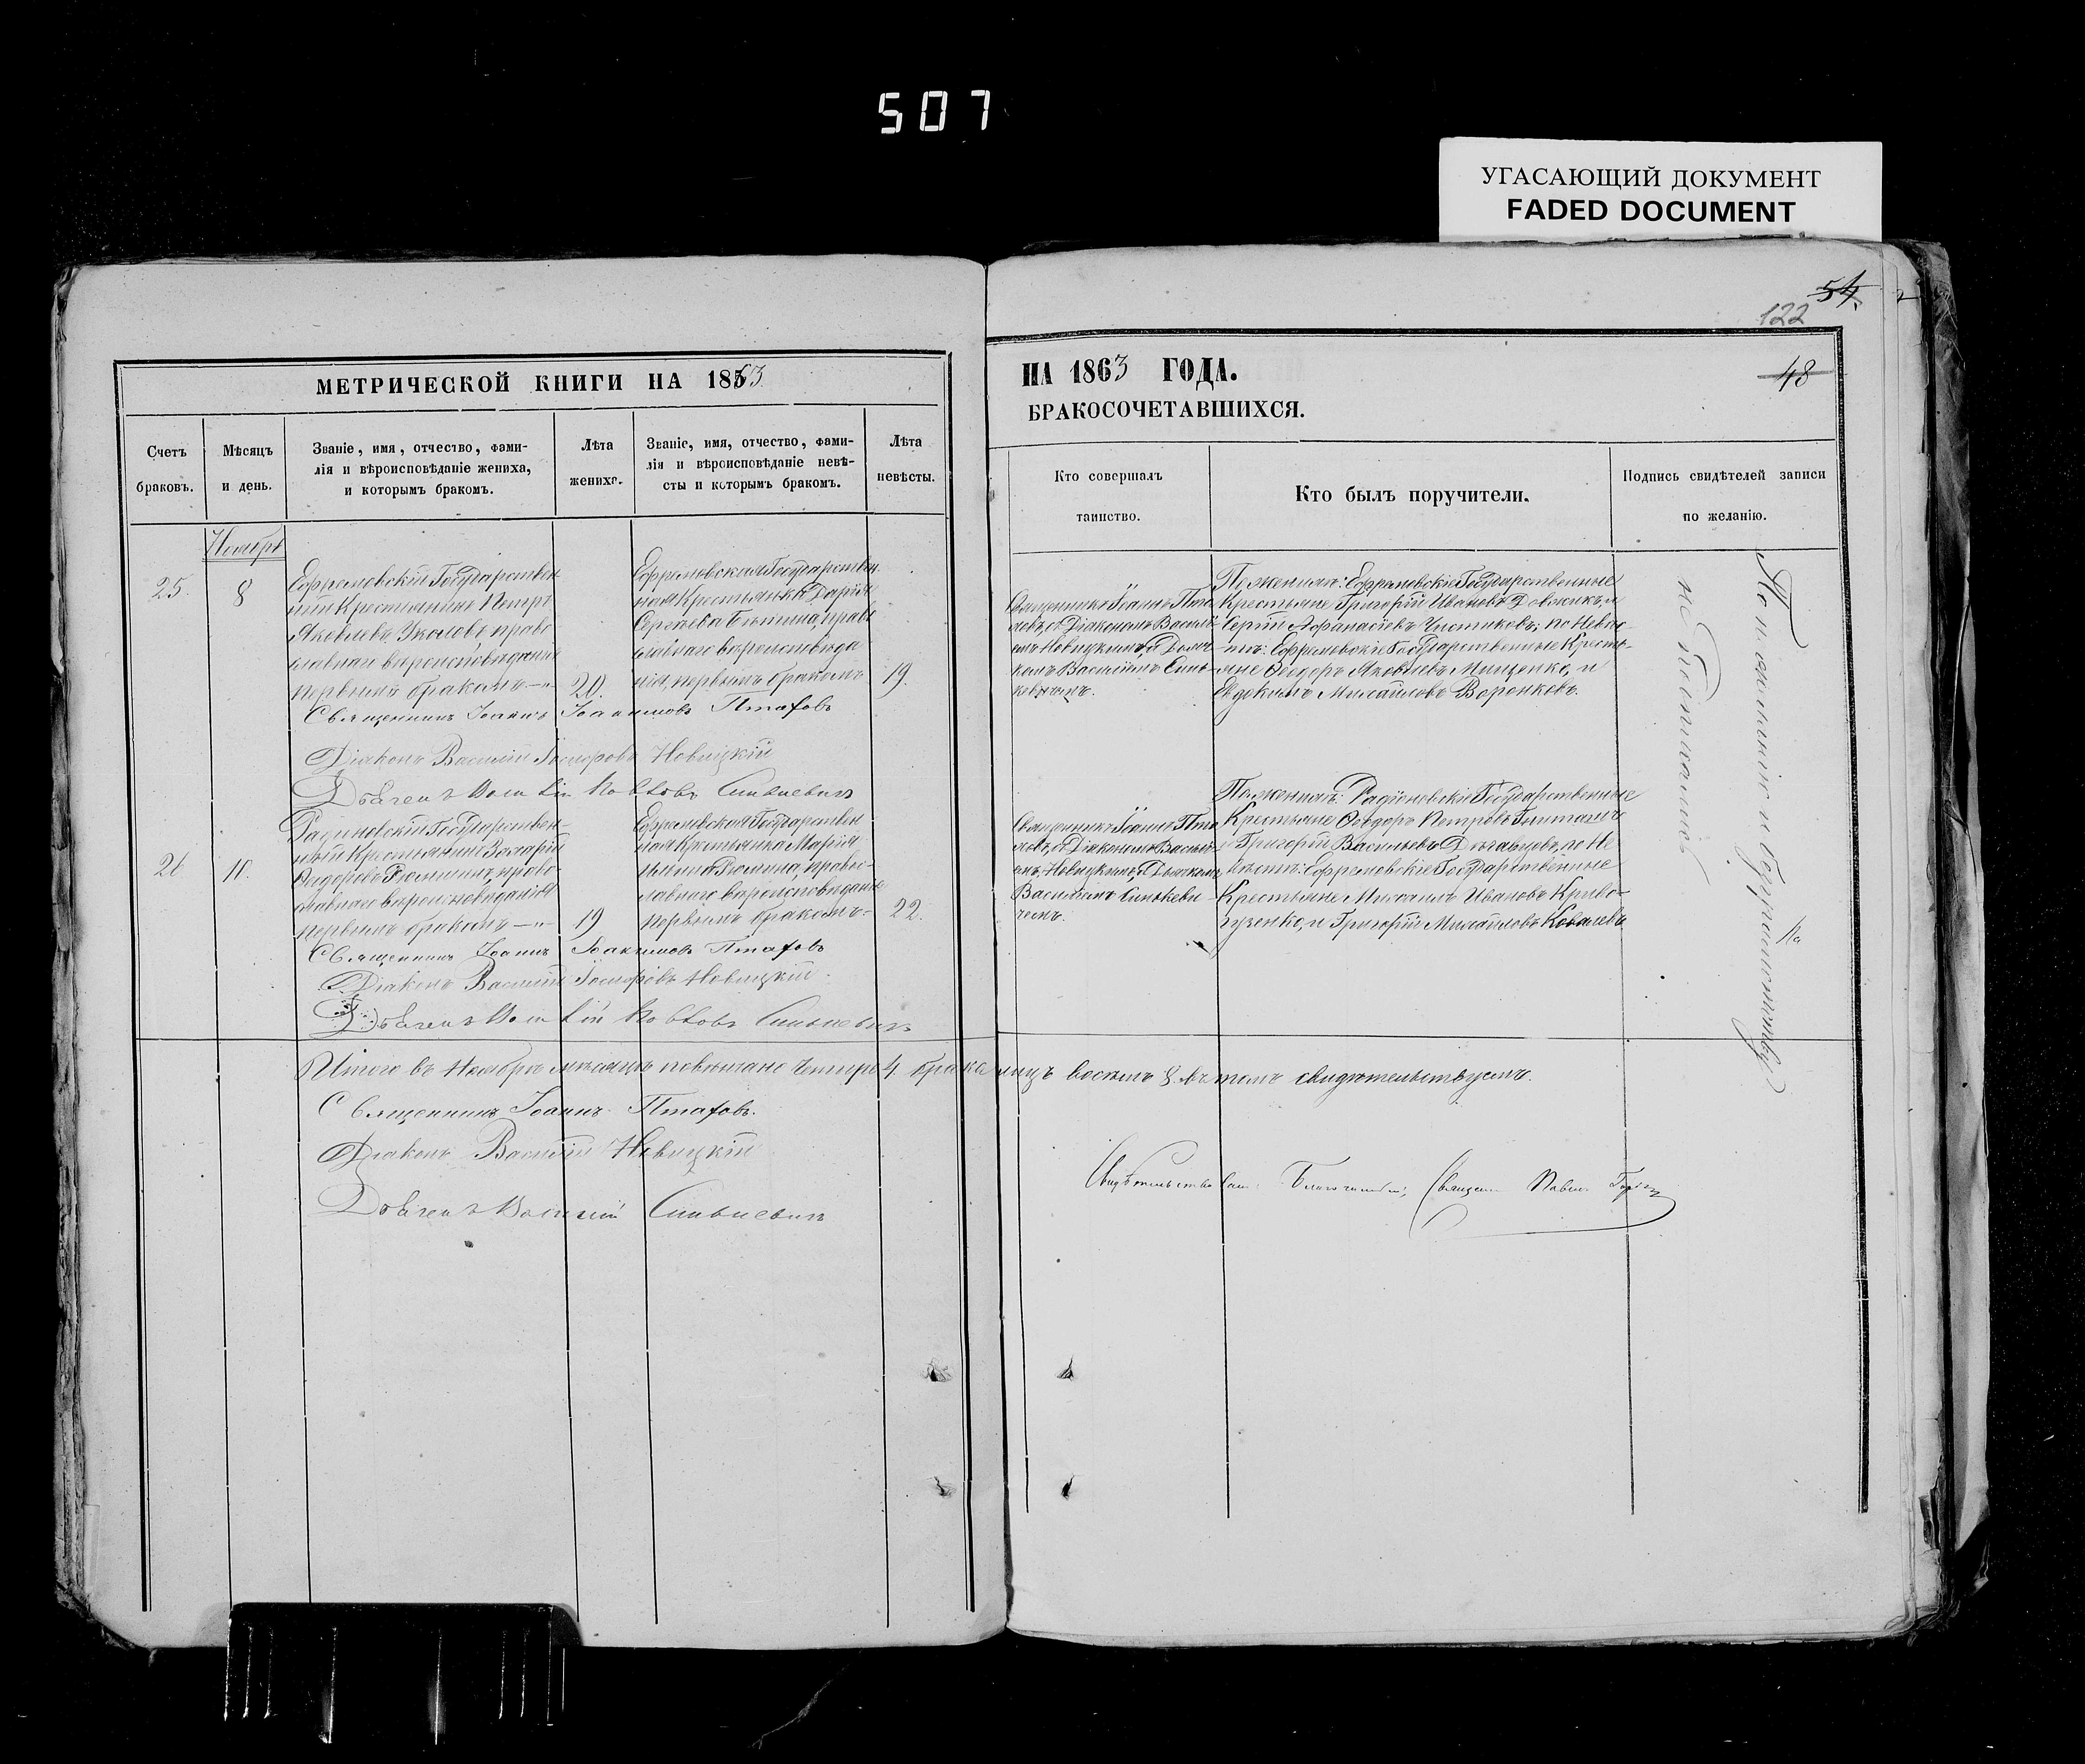 507
УГАСАЮЩИЙ ДОКУМЕНТ
FADED DOCUMENT
МЕТРИЧЕСКОЙ КНИГИ НА 1863
Счетъ браковъ.
Мѣсяцъ и день.
Званіе, имя, отчество, фами-
лія и вѣроисповѣданіе жениха,
и которымъ бракомъ.
Лѣта жениха.
Званіе, имя, отчество, фами-
лія и вѣроисповѣданіе невѣ-
сты и которымъ бракомъ.
Лѣта невѣсты.
Ноябрь
25.
8
Ефремовскій Государствен-
ный Крестьянинъ Петръ
Яковлевъ Уколовъ право-
славнаго вѣроисповѣданія
первымъ бракомъ
20.
Ефремовская Государствен
ная Крестьянка Дарія
Сергѣева православнаго вѣроисповѣда
нія, первымъ бракомъ
19.
Священникъ Іоаннъ Іоакимовъ Птаховъ
Діаконъ Василій Іосифовъ Новицкій
Дьячекъ Василій Синькевичъ
26
11.
Государствен-
ный Крестьянинъ Захарій
право-
славнаго вѣроисповѣданія
первымъ бракомъ
19
Ефремовская Государствен
ная Крестьянка Марія
Ильина правос-
лавнаго вѣроисповѣданія
первымъ бракомъ
22.
Священникъ Іоаннъ Іоакимовъ Птаховъ
Діаконъ Василій Іосифовъ Новицкій
Дьячекъ Василій Синькевичъ
Итого въ Ноябрѣ мѣсяцѣ повѣнчано четыре 4 брака лицъ восемь 8. въ томъ свидѣтельствуемъ.
Священникъ Іоаннъ Птаховъ.
Діаконъ Василій Новицкій
Дьячекъ Василій Синькевичъ
54.
122
48
НА 1863 ГОДА.
БРАКОСОЧЕТАВШИХСЯ.
Кто совершалъ
таинство.
Кто былъ поручители.
Подпись свидѣтелей записи
по желанію.
Священникъ Іоаннъ Пта
ховъ, съ Діакономъ Васи-
емъ Новицкимъ, и Дьяч-
комъ Василіемъ Синь-
кевичемъ.
По женихѣ: Ефремовскіе Государственные
Крестьяне Григорій Ивановъ Довжикъ, и
Сергій Афанасіевъ Чистиковъ; по невѣс-
тѣ: Ефремовскіе Государственные Кресть-
яне Ѳеодоръ Яковлевъ Мищенко, и
Евдокимъ Михайловъ Воронковъ.
Священникъ Іоаннъ Пта
ховъ, съ Діакономъ Васил
емъ Новицкимъ, и Дьячкомъ
Василіемъ Синькеви
чемъ.
По женихѣ: Государственные
Крестьяне Ѳеодоръ Петровъ
Григорій Васильевъ по Не
вѣстѣ: Ефремовскіе Государственные
Крестьяне Михаилъ Ивановъ Криво-
и Григорій Михайловъ Ковалевъ
Свидѣтельствовалъ Благочинный, Священ. Павелъ